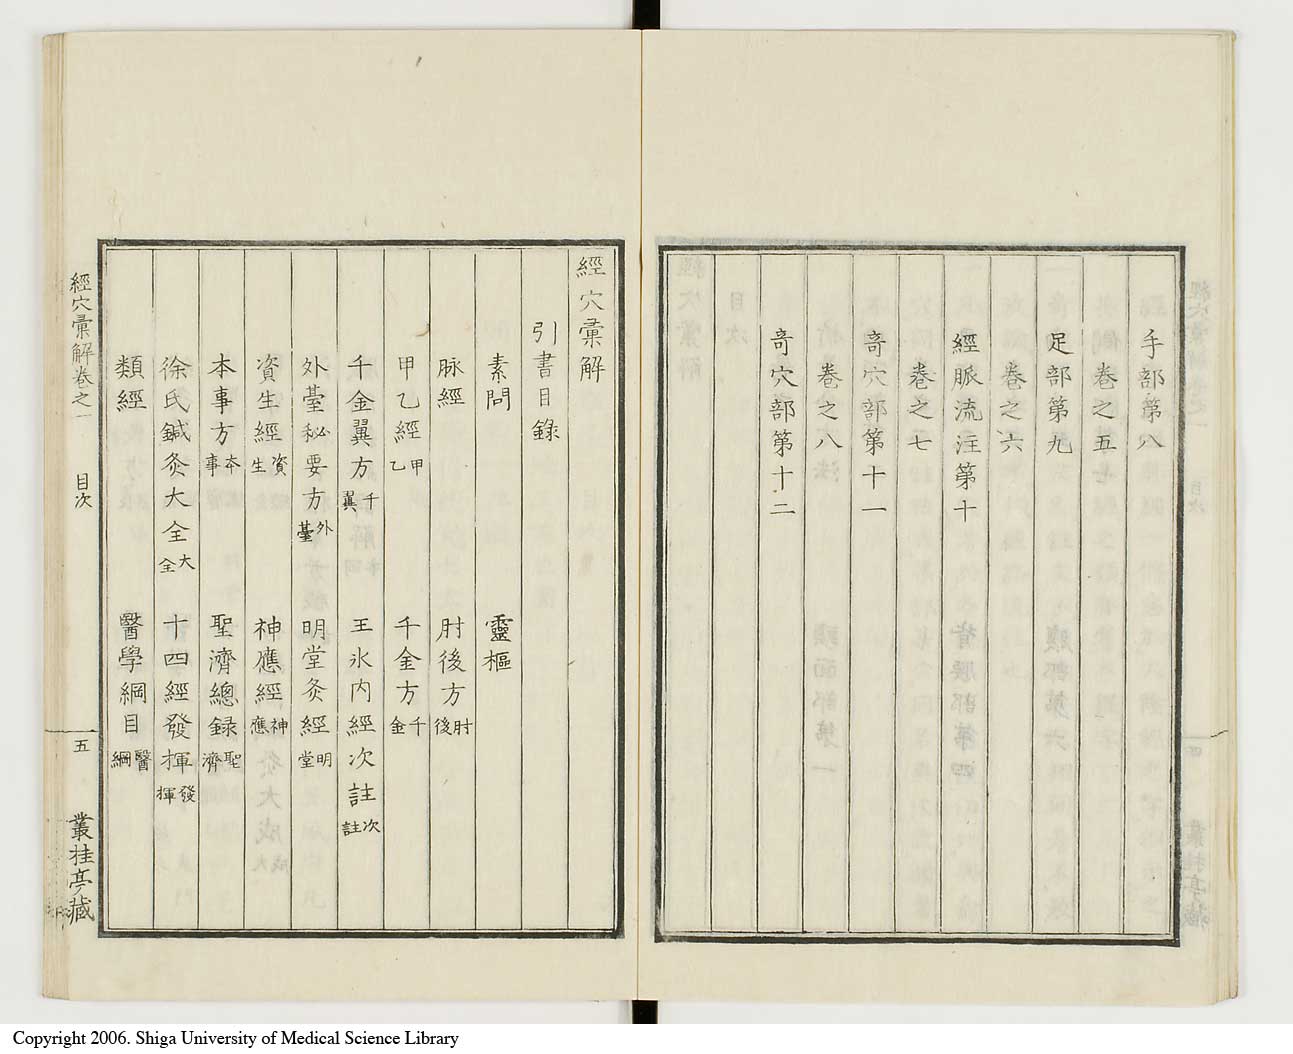 手部第八
卷之五
足部第九
卷之六
經脈流注第十
卷之七
竒穴部第十一
卷之八
竒穴部第十二
經穴彙解
引書目錄
素問 靈樞
脉經 肘後方肘後
甲乙經甲乙 千金方千金
千金翼方千翼 王氷內經次註次註
外臺秘要方外臺 明堂灸經明堂
資生經資生 神應經神應
本事方本事 聖濟總録聖濟
徐氏鍼灸大全大全 十四經發揮發揮
類經 醫學綱目醫綱
經穴彙解卷之一 目次 五 叢桂亭藏
Copyright 2006. Shiga University of Medical Science Library